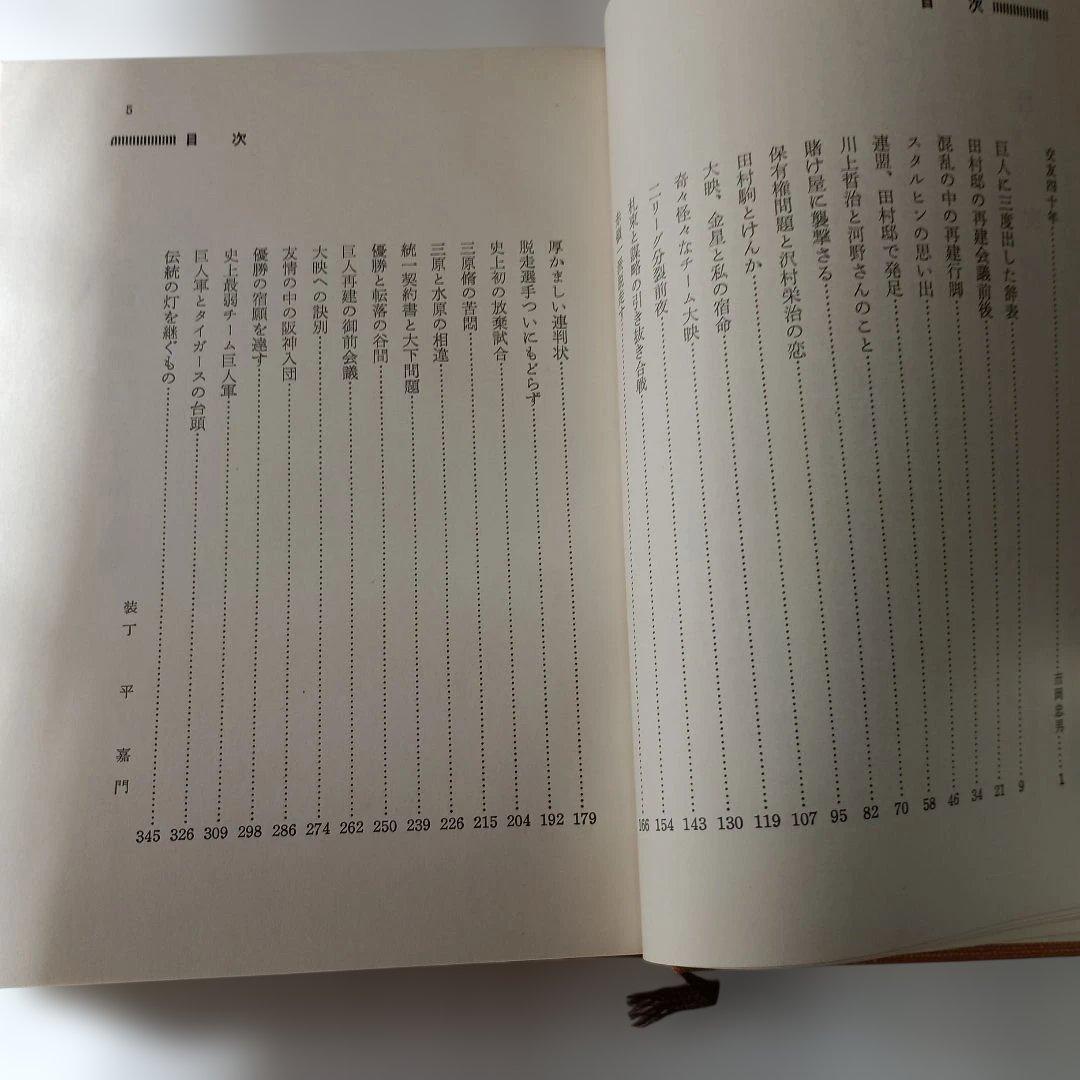 目 次
交友四十年 市岡忠男 1
巨人に三度出した辞表 9
田村邸の再建会議前後 21
混乱の中の再建行脚 34
スタルヒンの思い出 46
連盟、田村邸で発足 58
川上哲治と河野さんのこと 70
賭け屋に襲撃さる 82
保有権問題と沢村栄治の恋 95
田村駒とけんか 107
大映、金星と私の宿命 119
奇々怪々なチーム大映 130
二リーグ分裂前夜 143
札束と謀略の引き抜き合戦 154
166
5
目 次
厚かましい連判状 179
脱走選手ついにもどらず 192
史上初の放棄試合 204
三原脩の苦悶 215
三原と水原の相違 226
統一契約書と大下問題 239
優勝と転落の谷間 250
巨人再建の御前会議 262
大映への訣別 274
友情の中の阪神入団 286
優勝の宿願を達す 298
史上最弱チーム巨人軍 309
巨人軍とタイガースの台頭 326
伝統の灯を継ぐもの 345
装丁 平 嘉門